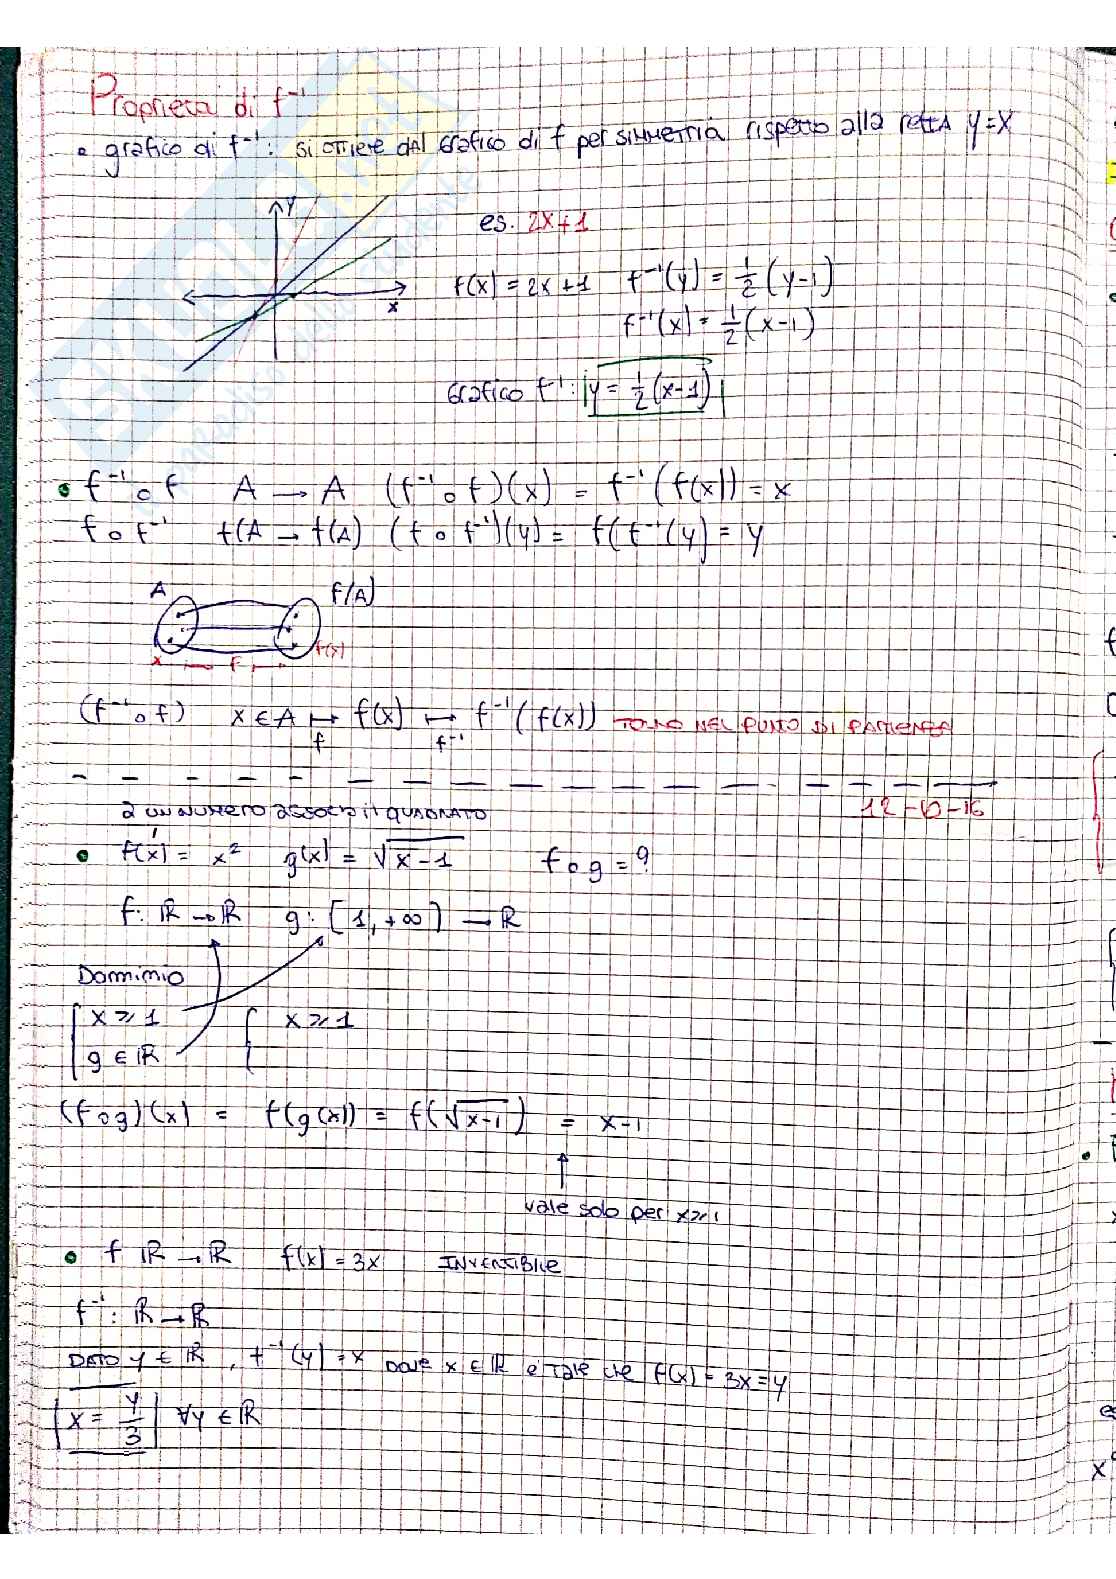 Proprietà di f⁻¹
• grafico di f⁻¹: si ottiene dal grafico di f per simmetria rispetto alla retta y=x
y
x
es. 2x+1
f(x) = 2x+1 f⁻¹(y) = 1/2 (y-1)
f⁻¹(x) = 1/2 (x-1)
Grafico f⁻¹: y = 1/2 (x-1)
• f⁻¹∘f A → A (f⁻¹∘f)(x) = f⁻¹(f(x)) = x
f∘f⁻¹ f(A → f(A) (f∘f⁻¹)(y) = f(f⁻¹(y) = y
A f(A)
x f f(x)
(f⁻¹∘f) x ∈ A ↦ f(x) ↦ f⁻¹(f(x)) TORNO NEL PUNTO DI PARTENZA
f f⁻¹
a un numero associa il QUADRATO
• f(x) = x² g(x) = √x-1 f∘g = ?
f: ℝ → ℝ g: [1, +∞) → ℝ
Dominio
{ x ⩾ 1 { x ⩾ 1
g ∈ ℝ
(f∘g)(x) = f(g(x)) = f(√x-1) = x-1
↑
vale solo per x⩾1
• f ℝ → ℝ f(x) = 3x INVERTIBILE
f⁻¹: ℝ → ℝ
DATO y ∈ ℝ, f⁻¹(y) = x DOVE x ∈ ℝ è TALE che f(x) = 3x = y
x = y/3 ∀y ∈ ℝ